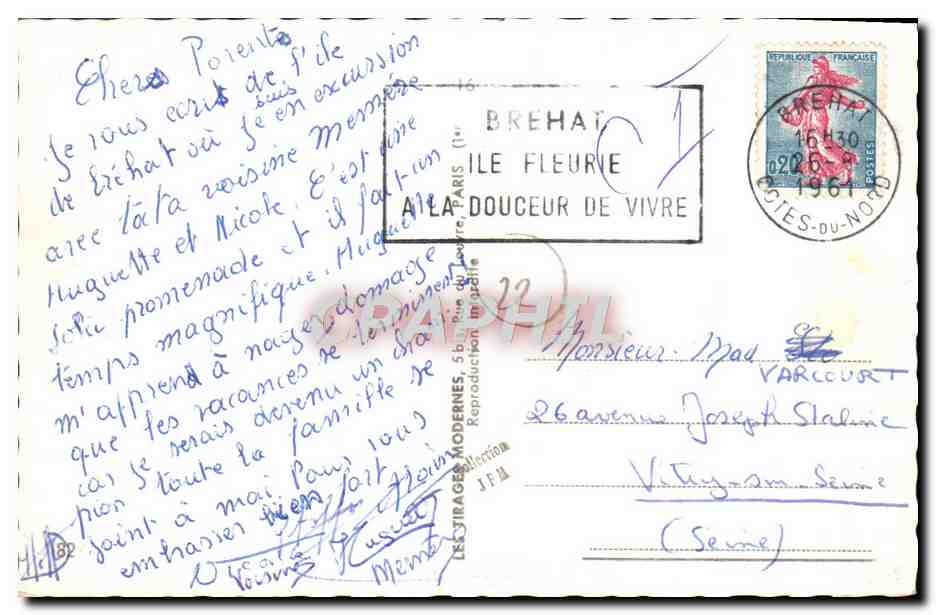 Chers Parents
Je vous écris de l'île
de Bréhat où je suis en excursion
avec tata voisine Memère
Huguette et Nicole. C'est une
jolie promenade et il fait un
temps magnifique. Huguette
m'apprend à nager domage
que les vacances se terminent
car je serais devenu un vrai
pion toute la famille se
joint à moi pour vous
embrasser bien fort
Voisine
Memère
82
16
BREHAT
ILE FLEURIE
A LA DOUCEUR DE VIVRE
REPUBLIQUE FRANÇAISE
0,20
POSTES
BREHAT
16H30
26-8
1961
COTES-DU-NORD
22
LES TIRAGES MODERNES, 5 bis Rue du Louvre, PARIS (1er
Reproduction interdite
CPAPHIL
Collection
JFM
Monsieur. Mad
VARCOURT
26 avenue Joseph Staline
Vitry-sur-Seine
(Seine)